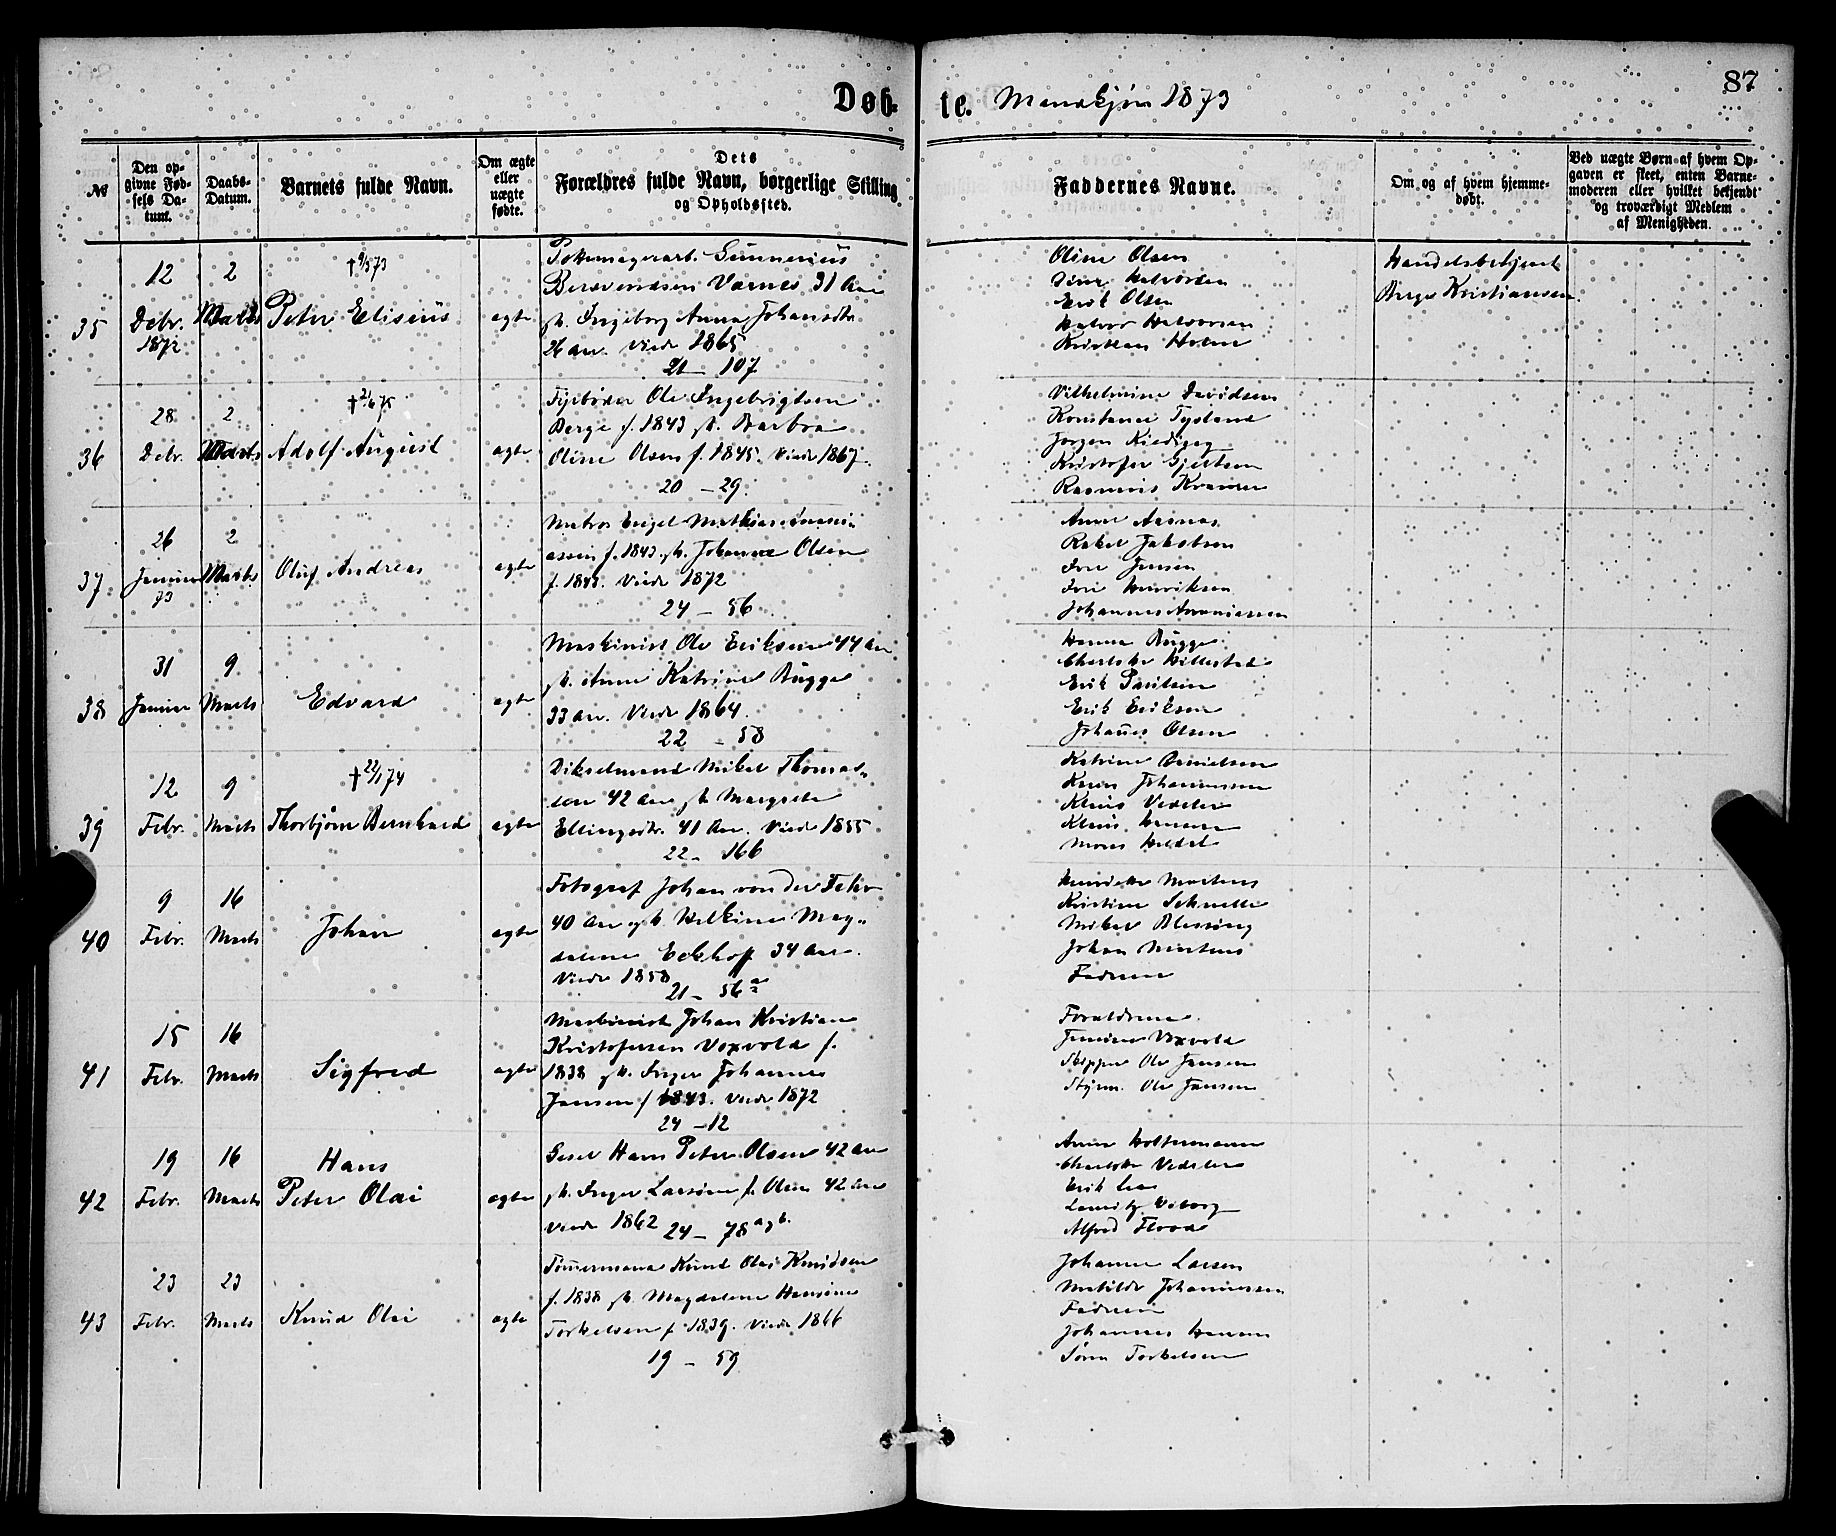 87
Døb-
te. Mandkjøn 1873
№
Den op-
givne Fød-
sels Da-
tum.
Daabs-
Datum.
Barnets fulde Navn.
Om ægte
eller
uægte
fødte.
Dets
Forældres fulde Navn, borgerlige Stilling
og Opholdssted.
Faddernes Navne.
Om og af hvem hjemme-
døbt.
Ved uægte Børn af hvem Op-
gaven er skeet, enten Barne-
moderen eller hvilket bekjendt
og troværdigt Medlem
af Menigheden.
35
12
Debr.
1872
2
Marts
†9/3 73
Peter Elisius
ægte
Gunnerius
Varnes 31 Aar
gh. Ingeborg Anna Johansdtr.
26 Aar. Viede 1865
21 – 107
Oline Olsen
Halvorsen
Erik Olsen
Halvor Halvorsen
Kristian Holm
Handelsbetjent
Birger Kristiansen
36
28
Debr.
2
Marts
Adolf August
ægte
Ole Ingebrigtsen
Berge f. 1843 gh. Barbra
Oline Olsen f. 1845. Viede 1867.
20 – 29.
Vilhelmine Davidsen
Konstance Tysland
Jørgen
Kristofer Gjertsen
Rasmus Kramer
37
26
Januar
73
2
Marts
Oluf Andreas
ægte
Matros Engel Mathias
f. 1843. gh. Johanne Olsen
Viede 1872
24 – 56
Anne Aasnes
Rakel Jakobsen
Jensen
Henriksen
Johannes Ananiassen
38
31
Januar
9
Marts
Edvard
ægte
Maskinist Ole Eriksen 44 Aar
gh. Anne Katrine Bugge
33 Aar. Viede 1864.
22 – 58
Hanna Bugge
Charlotte Hillestad
Erik Paulsen
Erik Eriksen
Johannes Olsen
39
12
Febr.
9
Marts
†22/1 74
Thorbjørn Bernhard
ægte
Mikel Thomas-
sen 42 Aar gh. Margrete
Ellingsdtr. 41 Aar. Viede 1855
22 – 166
Katrine Danielsen
Karen Johannessen
Klaus Vedeler
Klaus Hansen
Mons
40
9
Febr.
16
Marts
Johan
ægte
Fotograf Johan von der Fehr
40 Aar gh. Mag-
dalene Eckhoff 34 Aar.
Viede 1858
21 – 56 a
Henrikke Martens
Kristine
Mikal Blessing
Johan Martens
Faderen
41
15
Febr.
16
Marts
Sigfred
ægte
Maskinist Johan Kristian
Kristofersen Voxvold f.
1838 gh. Inger Johanne
Jansen f. 1843. Viede 1872
24 – 12
Forældrene.
Voxvold
Skipper Ole Jansen
Styrm. Ole Jansen
42
19
Febr.
16
Marts
Hans
Peter Olai
ægte
Hans Peter Olsen 42 Aar
gh. Inger f. Olsen 42 Aar
Viede 1862
24 – 78 a g b.
Anne Holtermann
Charlotte Vedeler
Erik
Viborg
Alfred Flood
43
23
Febr.
23
Marts
Knud Olai
ægte
Tømmermand Knud Olai Knudsen
f. 1838 gh. Magdalene Hansine
Torkelsen f. 1839. Viede 1866
19 – 59
Johanne Larsen
Matilde Johannessen
Faderen
Johannes Hansen
Søren Torkelsen